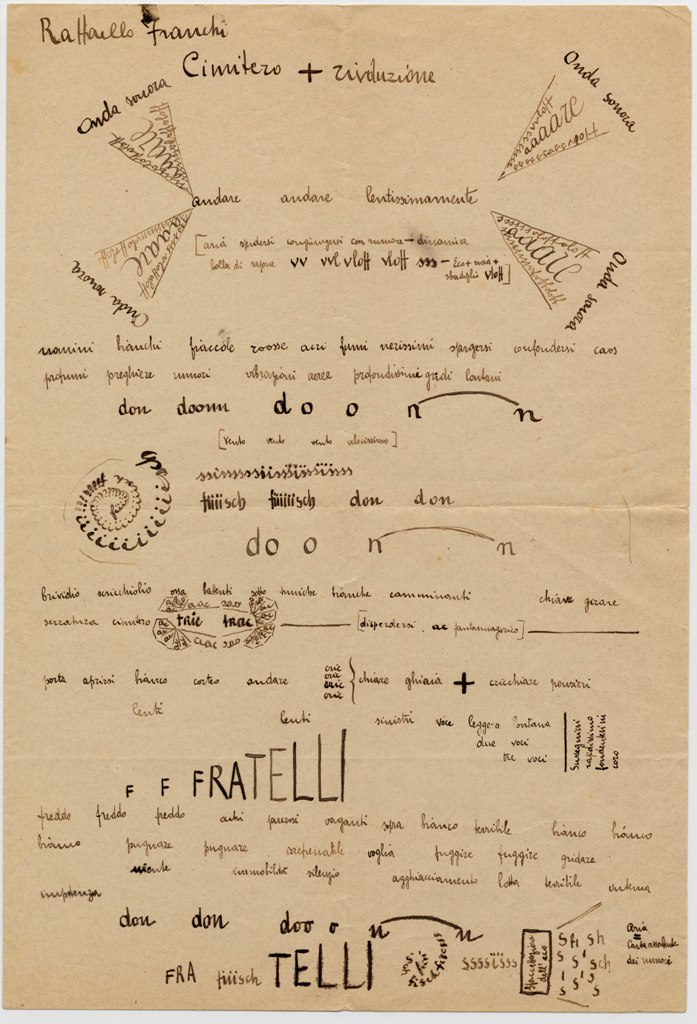 Raffaello Franchi
Cimitero + rivoluzione
Onda sonora
Onda sonora
aaaarc
andare andare lentissimamente
[aria spandersi congiungersi con rumore – dinamica
bolla di sapone vv vvl vloff vloff sss – Eco + noia +
sbadiglio vloff]
Onda sonora
Onda sonora
uomini bianchi fiaccole rosse acri fumi nerissimi spargersi confondersi caos
profumi preghiere rumori vibrazioni aeree profondissimi gridi lontani
don doonn d o o n n
[vento vento vento velocissimo]
fiiiisch fiiiiisch don don
do o n n
brividio scricchiolio ossa battenti sotto tuniche bianche camminanti chiave girare
serratura cimitero tric trac [disperdersi ac fantasmagorico]
porta aprirsi bianco corteo andare cric cric cric cric } chiare ghiaia + cricchiare pensieri
lenti lenti sinistri voce leggera lontana
due voci
tre voci
Susseguirsi
rapidissimo
fondentesi
coro
F F FRATELLI
freddo freddo freddo occhi paurosi vaganti sopra bianco terribile bianco bianco
bianco pugnare pugnare irrefrenabile voglia fuggire fuggire gridare
niente immobilità silenzio agghiacciamento lotta terribile
impotenza
don don doo o n n
FRA fiiisch TELLI
ssssiïsss
dell'eco
S f i S h
Aria
=
Carta assorbente
dei rumori